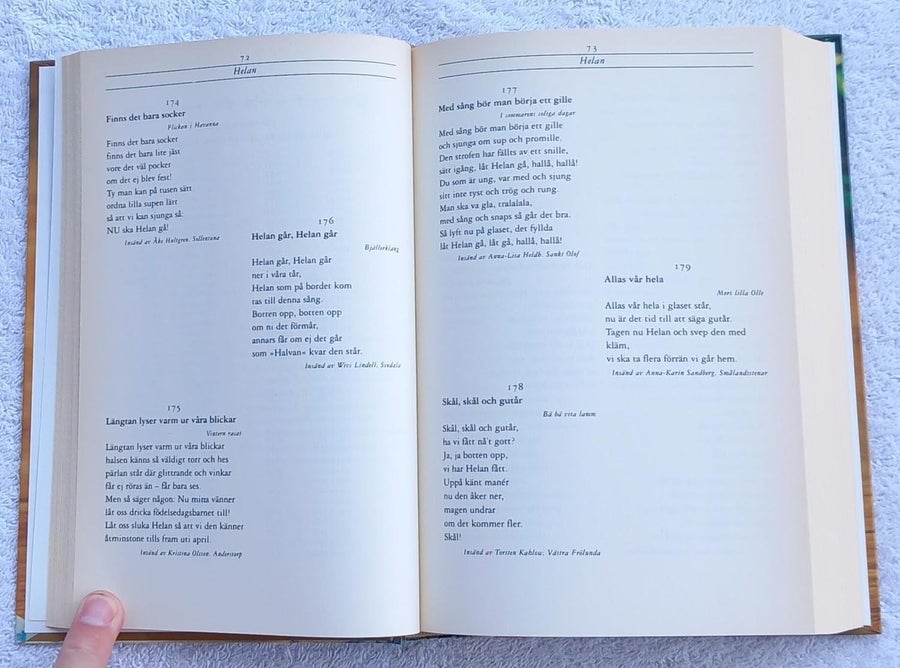 72
Helan
174
Finns det bara socker
Flickan i Havanna
Finns det bara socker
finns det bara lite jäst
vore det väl pocker
om det ej blev fest!
Ty man kan på rusen sätt
ordna lilla supen lätt
så att vi kan sjunga så:
NU ska Helan gå!
Insänd av Åke Hultgren, Sollentuna
176
Helan går, Helan går
Bjällerklang
Helan går, Helan går
ner i våra tår,
Helan som på bordet kom
tas till denna sång.
Botten opp, botten opp
om ni det förmår,
annars får om ej det går
som »Halvan« kvar den står.
Insänd av Wivi Lindell, Svedala
175
Längtan lyser varm ur våra blickar
Vintern rasat
Längtan lyser varm ur våra blickar
halsen känns så väldigt torr och hes
pärlan står där glittrande och vinkar
får ej röras än – får bara ses.
Men så säger någon: Nu mina vänner
låt oss dricka födelsedagsbarnet till!
Låt oss sluka Helan så att vi den känner
åtminstone tills fram uti april.
Insänd av Kristina Olsson, Anderstorp
73
Helan
177
Med sång bör man börja ett gille
I sommarens soliga dagar
Med sång bör man börja ett gille
och sjunga om sup och promille.
Den strofen har fällts av ett snille,
sätt igång, låt Helan gå, hallå, hallå!
Du som är ung, var med och sjung
sitt inte tyst och trög och tung.
Man ska va gla, tralalala,
med sång och snaps så går det bra.
Så lyft nu på glaset, det fyllda
låt Helan gå, låt gå, hallå, hallå!
Insänd av Anna-Lisa Holdh, Sankt Olof
179
Allas vår hela
Mors lilla Olle
Allas vår hela i glaset står,
nu är det tid till att säga gutår.
Tagen nu Helan och svep den med
kläm,
vi ska ta flera förrän vi går hem.
Insänd av Anna-Karin Sandberg, Smålandsstenar
178
Skål, skål och gutår
Bä bä vita lamm
Skål, skål och gutår,
ha vi fått nå't gott?
Ja, ja botten opp,
vi har Helan fått.
Uppå känt manér
nu den åker ner,
magen undrar
om det kommer fler.
Skål!
Insänd av Torsten Kahlow, Västra Frölunda